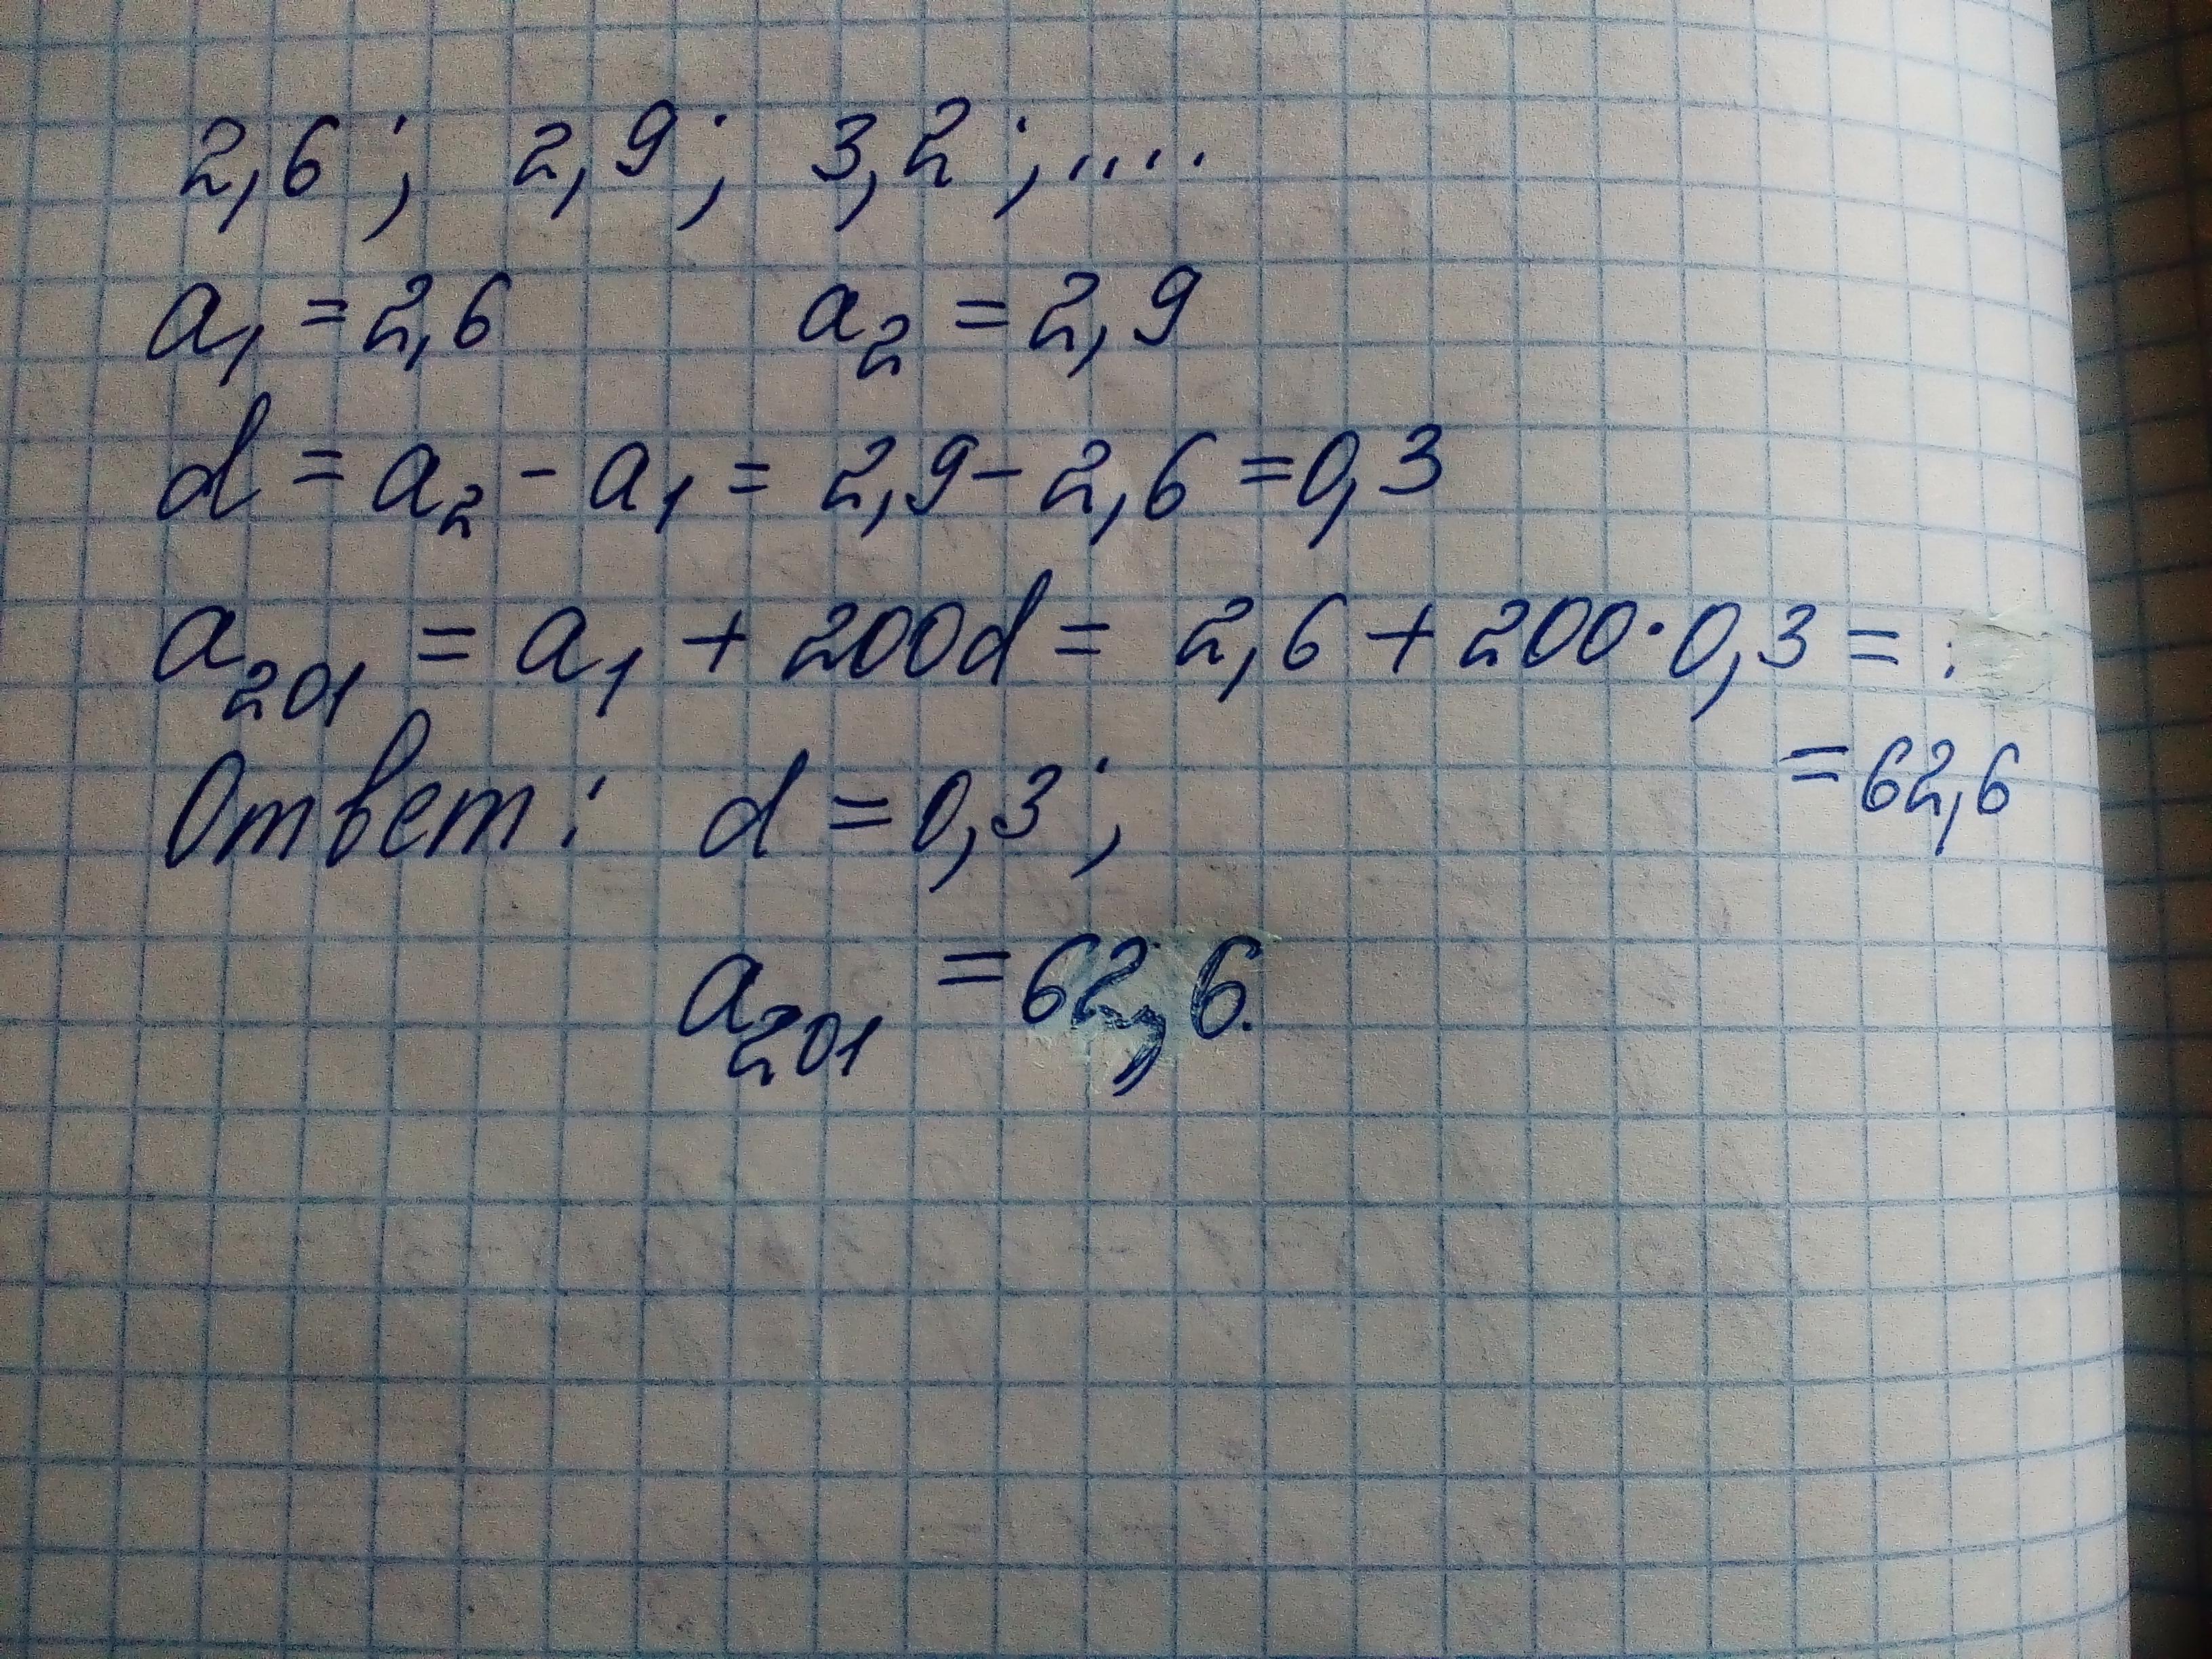 2,6; 2,9; 3,2;....
a₁ = 2,6 a₂ = 2,9
d = a₂ - a₁ = 2,9 - 2,6 = 0,3
a₂₀₁ = a₁ + 200d = 2,6 + 200·0,3 =
= 62,6
Ответ: d = 0,3;
a₂₀₁ = 62,6.